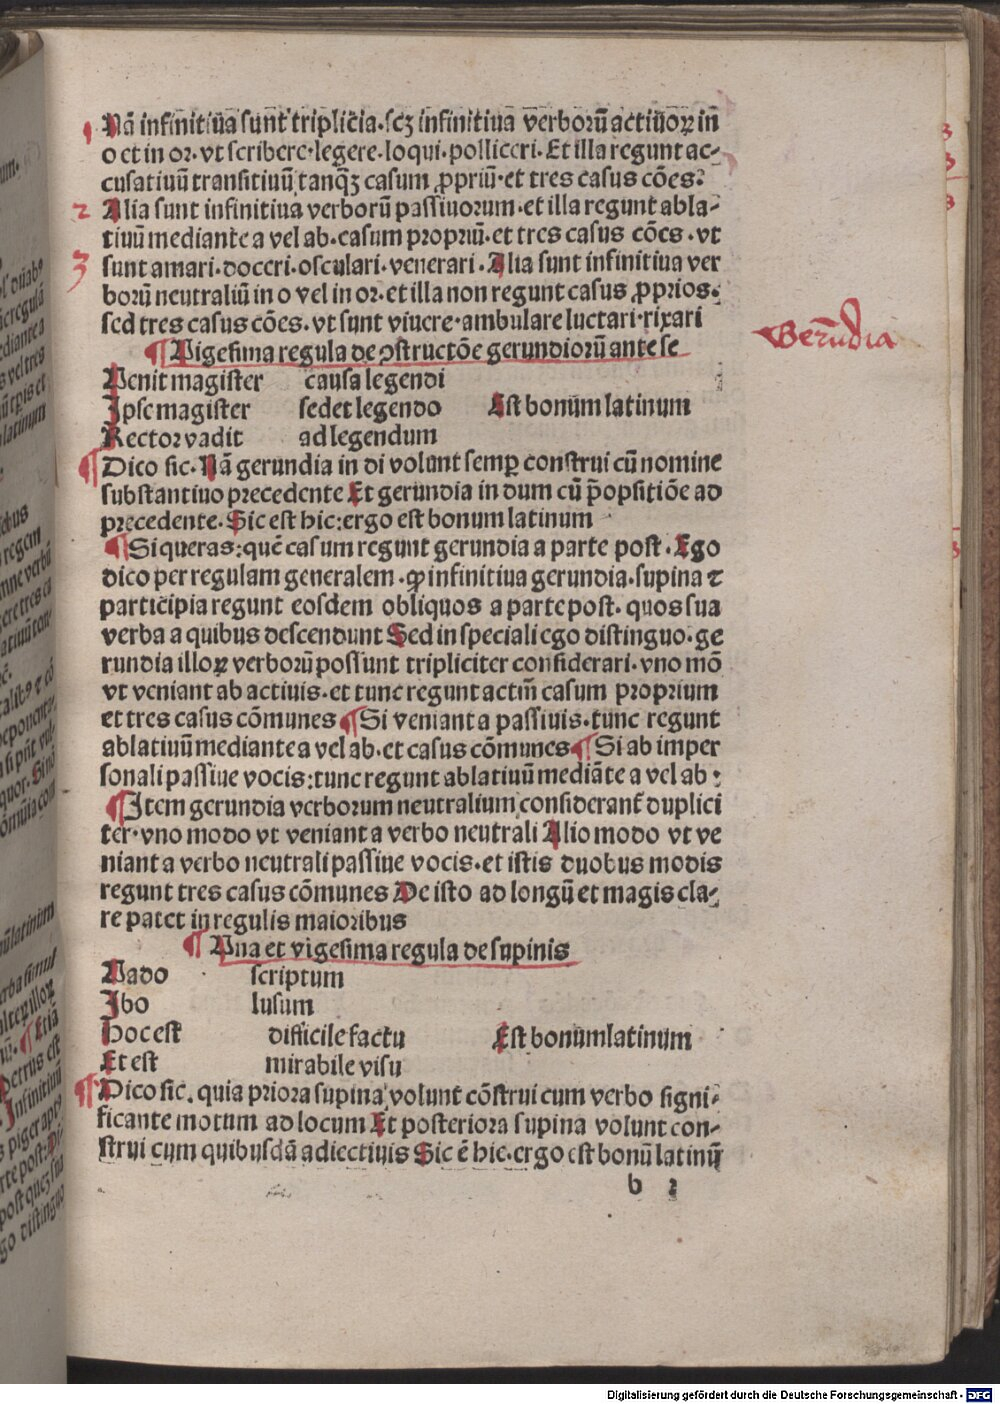 Nā infinitiua sunt triplicia.scꝫ infinitiua verborū actiuoꝝ in
o et in or. vt scribere.legere.loqui.polliceri. Et illa regunt ac-
cusatiuū transitiuū tanqꝫ casum ꝓpriū.et tres casus cōes.
2 Alia sunt infinitiua verborū passiuorum.et illa regunt abla-
tiuū mediante a vel ab.casum propriū.et tres casus cōes.vt
3 sunt amari.doceri.osculari.venerari. Alia sunt infinitiua ver
borū neutraliū in o vel in or.et illa non regunt casus ꝓprios.
sed tres casus cōes.vt sunt viuere.ambulare luctari.rixari
Gerundia
¶ Vigesima regula de ꝯstructōe gerundiorū ante se
Venit magister causa legendi
Ipse magister sedet legendo Est bonum latinum
Rector vadit ad legendum
¶ Dico sic. Nā gerundia in di volunt semꝑ construi cū nomine
substantiuo precedente Et gerundia in dum cū p̄opsitiōe ad
precedente. Sic est hic:ergo est bonum latinum
¶ Si queras:quē casum regunt gerundia a parte post. Ego
dico per regulam generalem. ꝙ infinitiua gerundia.supina ⁊
participia regunt eosdem obliquos a parte post. quos sua
verba a quibus descendunt Sed in speciali ego distinguo.ge
rundia illoꝝ verborū possunt tripliciter considerari.vno mō
vt veniant ab actiuis.et tunc regunt actm̄ casum proprium
et tres casus cōmunes ¶ Si veniant a passiuis.tunc regunt
ablatiuū mediante a vel ab.et casus cōmunes ¶ Si ab imper
sonali passiue vocis:tunc regunt ablatiuū mediāte a vel ab:
¶ Item gerundia verborum neutralium considerant̄ duplici
ter.vno modo vt veniant a verbo neutrali Alio modo vt ve
niant a verbo neutrali passiue vocis.et istis duobus modis
regunt tres casus cōmunes De isto ad longū et magis cla-
re patet in regulis maioribus
¶ Vna et vigesima regula de supinis
Vado scriptum
Ibo lusum
Hoc est difficile factu Est bonum latinum
Et est mirabile visu
¶ Dico sic. quia priora supina volunt cōstrui cum verbo signi-
ficante motum ad locum Et posteriora supina volunt con-
strui cum quibusdā adiectiuis Sic ē hic.ergo est bonū latinū
b 2
Digitalisierung gefördert durch die Deutsche Forschungsgemeinschaft - DFG